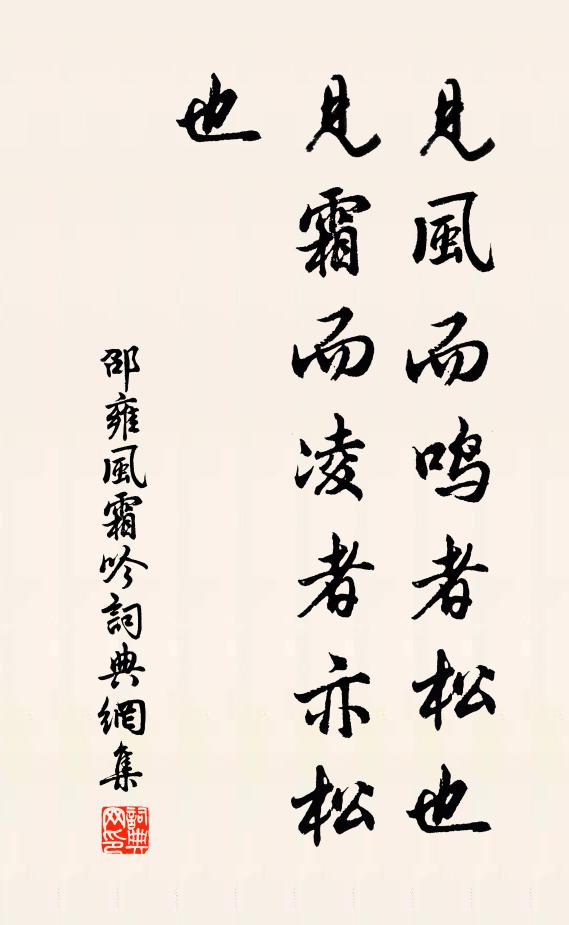 見風而鳴者松也
見霜而凌者亦松
也
邵雍風霜吟詞典網集
詞典
网印